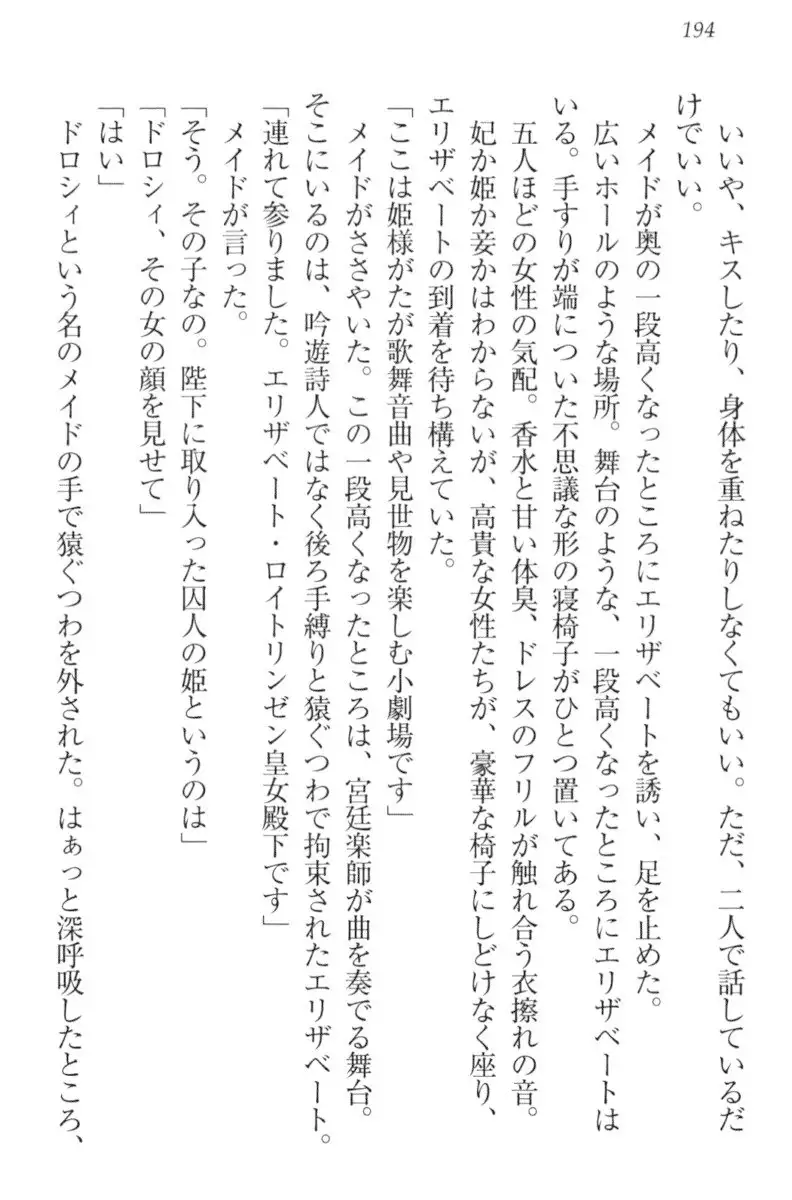 194
いいや、キスしたり、身体を重ねたりしなくてもいい。ただ、二人で話しているだ
けでいい。
メイドが奥の一段高くなったところにエリザベートを誘い、足を止めた。
広いホールのような場所。舞台のような、一段高くなったところにエリザベートは
いる。手すりが端についた不思議な形の寝椅子がひとつ置いてある。
五人ほどの女性の気配。香水と甘い体臭、ドレスのフリルが触れ合う衣擦れの音。
妃か姫か妾かはわからないが、高貴な女性たちが、豪華な椅子にしどけなく座り、
エリザベートの到着を待ち構えていた。
「ここは姫様がたが歌舞音曲や見世物を楽しむ小劇場です」
メイドがささやいた。この一段高くなったところは、宮廷楽師が曲を奏でる舞台。
そこにいるのは、吟遊詩人ではなく後ろ手縛りと猿ぐつわで拘束されたエリザベート。
「連れて参りました。エリザベート・ロイトリンゼン皇女殿下です」
メイドが言った。
「そう。その子なの。陛下に取り入った囚人の姫というのは」
「ドロシィ、その女の顔を見せて」
「はい」
ドロシィという名のメイドの手で猿ぐつわを外された。はぁっと深呼吸したところ、